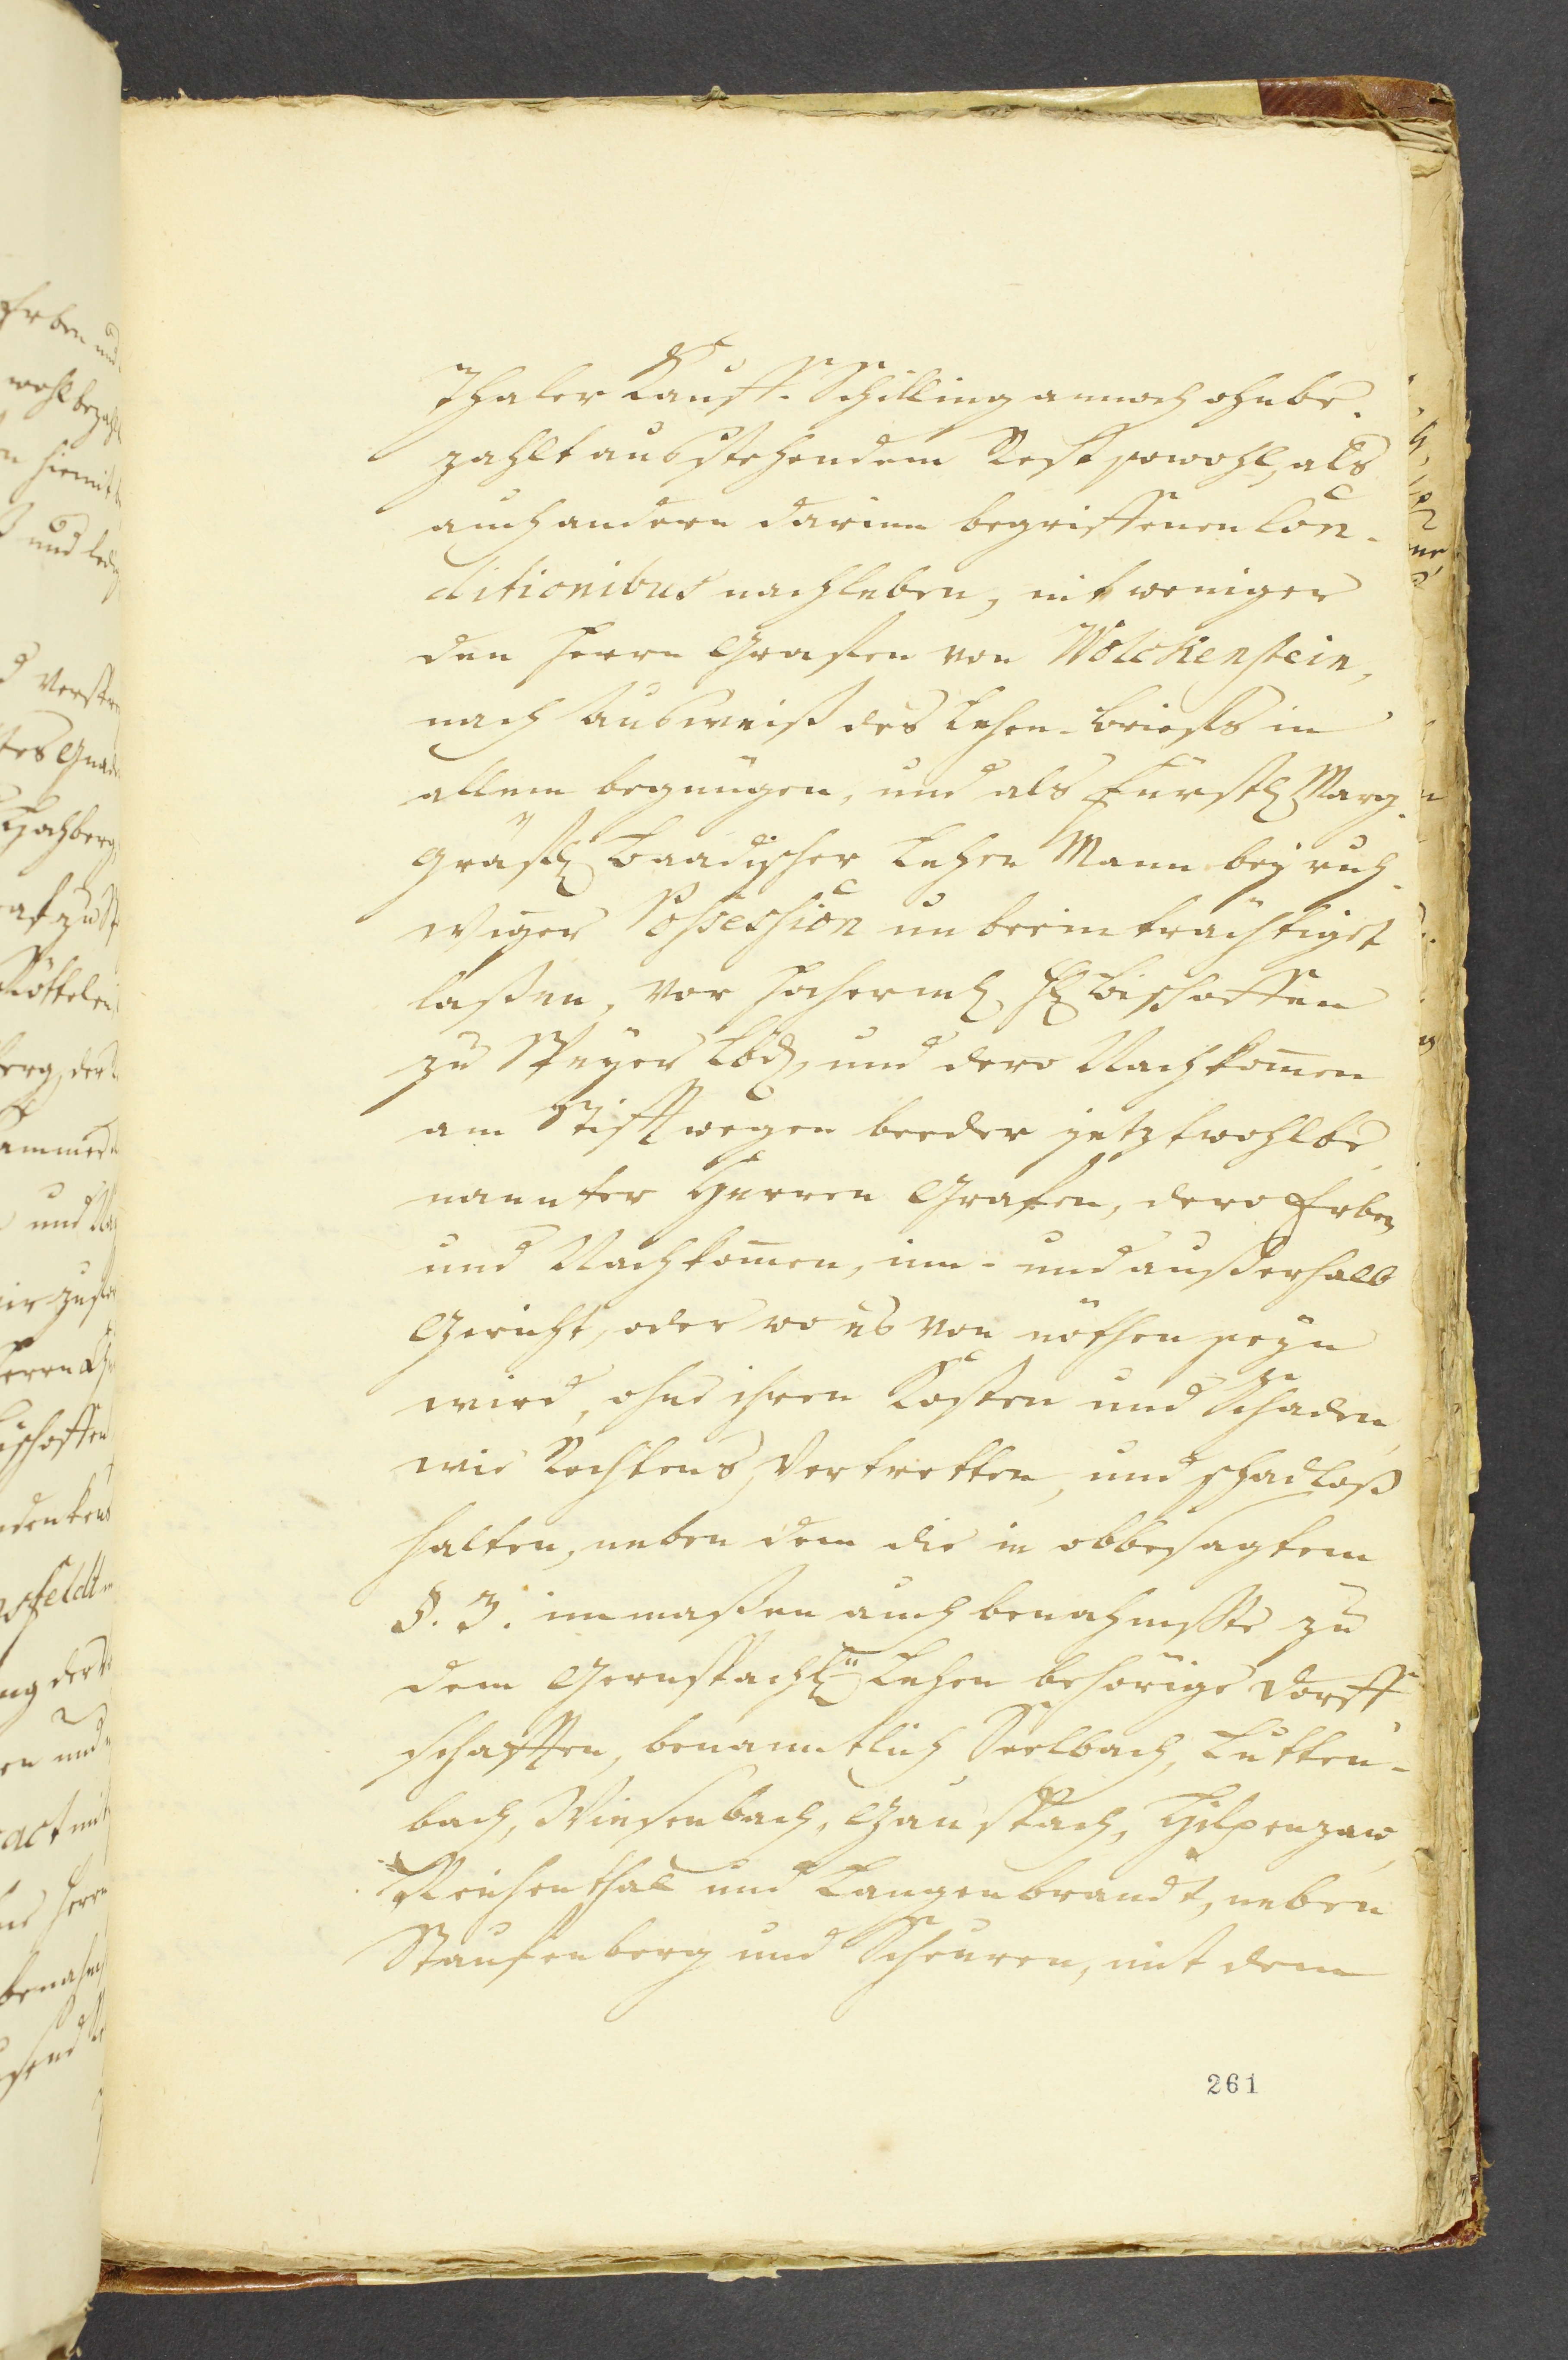 Thaler Kauff-Schilling annoch ohnbe-
zahlt ausstehendem Rest sowohl, als
auch andern darinn begriffenen Con-
ditionibus nachleben, nit weniger
den Herrn Grafen von Wolckenstein,
nach Ausweiß des Lehen-Briefs in
allem begnügen, und als Fürstl. Marg-
gräfl. Baadischer Lehen Mann bey ruh-
wiger Possession unbeeinträchtiget
laßen, vor Hochermel. H. Bischoffen
zu Speyer Lbd. und dero Nachkom̄en
am Stifft wegen beeder jetztwohlbe-
nannter Herren Grafen, dero Erben
und Nachkom̄en, inn- und außerhalb
Gericht, oder wo es von nöthen seyn
wird, ohne ihren Kosten und Schaden,
wie Rechtens, Vertretten, und schadloß
halten, neben dem die in obbesagtem
§. 3. immaßen auch benahmste zu
dem Gernspachl. Lehen behörige Dorff-
schafften, benanntlich Seelbach, Lutten-
bach, Wiesenbach, Gauspach, Hilpenzaw,
Reichenthal und Langenbrandt, neben
Staufenberg und Scheuren, mit dem
261